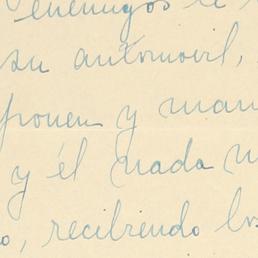 enemigos le
su automovil,
ponen y man
y él nada
, recibiendo los